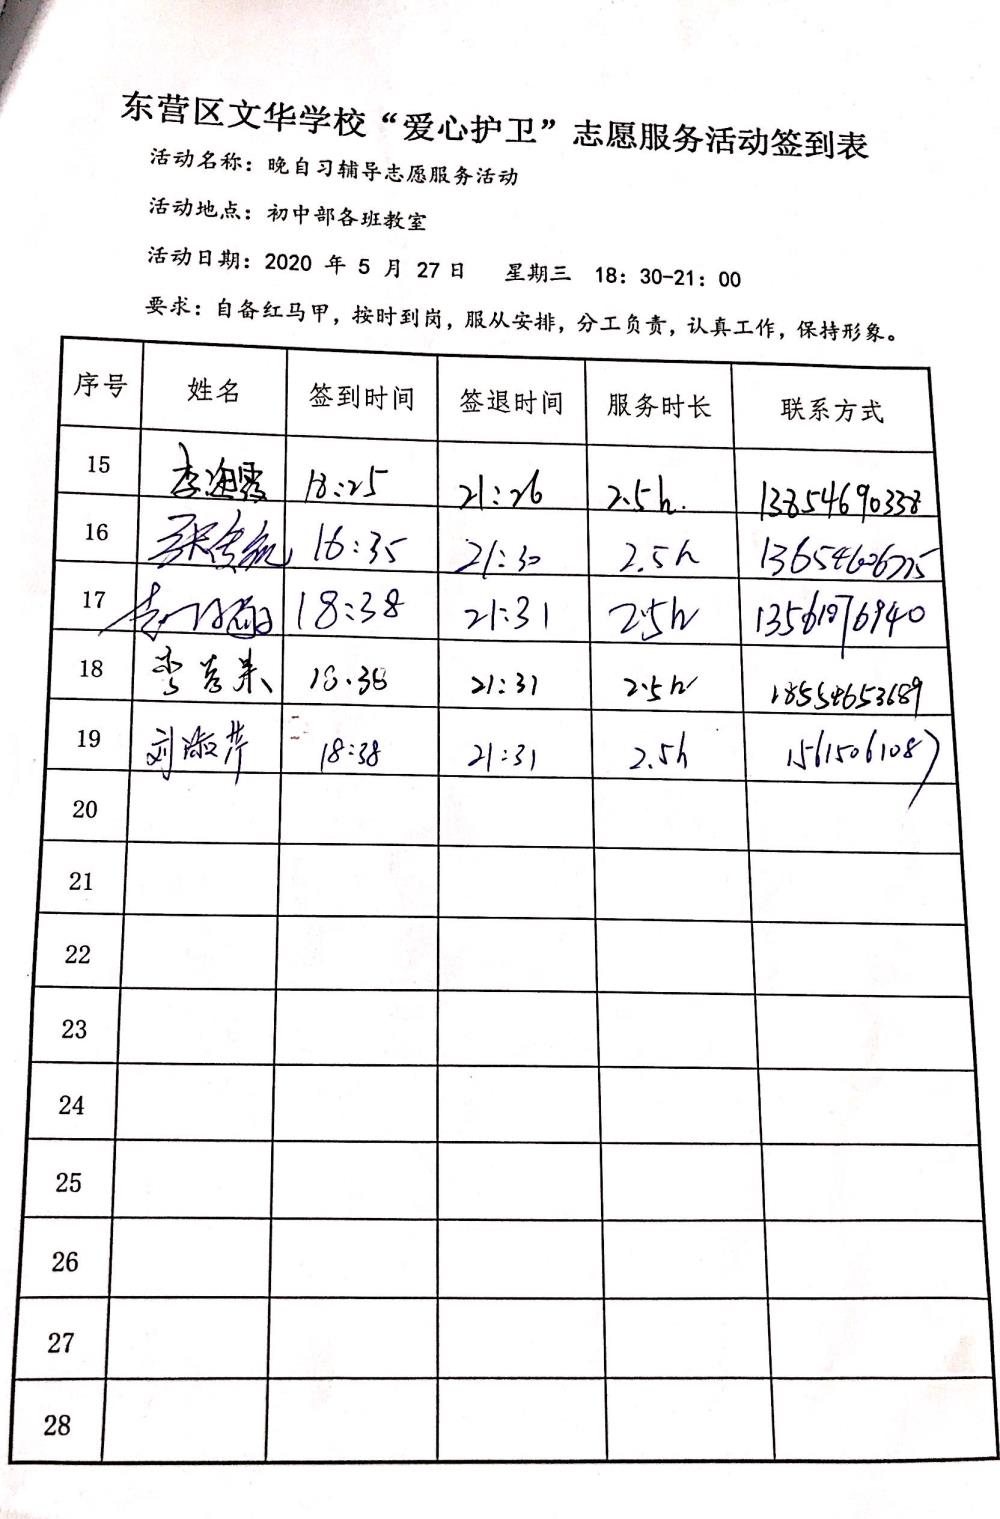 东营区文华学校“爱心护卫”志愿服务活动签到表
活动名称：晚自习辅导志愿服务活动
活动地点：初中部各班教室
活动日期：2020 年 5 月 27日 星期三 18：30-21：00
要求：自备红马甲，按时到岗，服从安排，分工负责，认真工作，保持形象。
序号 姓名 签到时间 签退时间 服务时长 联系方式
15 18:25 21:26 2.5h. 13854690338
16 16:35 21:30 2.5h
17 18:38 21:31 2.5h 13561976940
18 18:38 21:31 2.5h 18554653689
19 刘淑芹 18:38 21:31 2.5h 15615061087
20
21
22
23
24
25
26
27
28